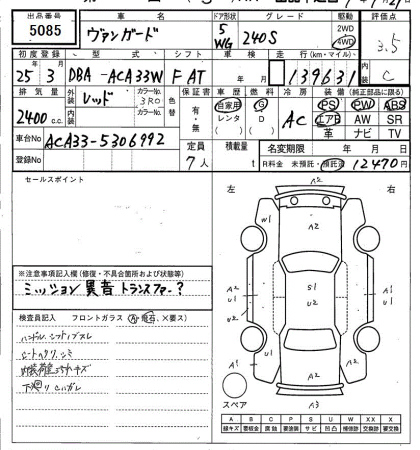 出品番号 車名 ドア形状 グレード 駆動 評価点
5085 ヴァンガード 5 WG 240S 2WD 4WD 3.5
初度登録 型式 シフト 車検 走行(km・マイル) 内装
25年3月 DBA-ACA33W F AT 年 月 139631 C
排気量 外装 レッド カラーNo. 3R0 色替 保証書 車歴 燃料 冷房 装備(純正部品に限る)
2400c.c. 内装 カラーNo. 有・無 自家用 レンタ G D AC PS PW ABS
エアB AW SR
革 ナビ TV
車台No ACA33-5306992 定員 積載量 名変期限 年 月 日
登録No 7人 t R料金 未預託・預託済 12470円
セールスポイント
左 右
A2
W1
A2
A2 U1
S1
U2
A2 U1
A1
U1
A1
A2
スペア
A3
※注意事項記入欄(修復・不具合箇所および状態等)
ミッション異音 トランスファー?
検査員記入 フロントガラス(A・飛石、×要ス)
ハンドル、シフトノブスレ
シートヘタリ、シミ
内装荷室ヨゴレキズ
下廻りサビ
A B C P S U W X XX
線キズ 要板金 腐蝕 要塗装 サビ 凹凸 補修跡 要交換 交換済